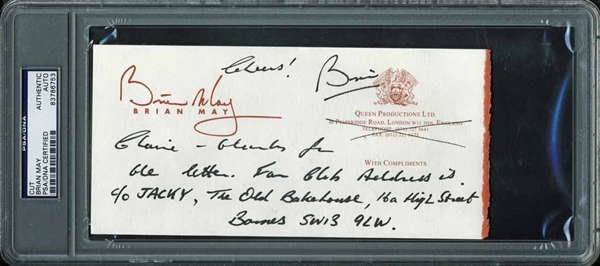 PSA/DNA
CUT
BRIAN MAY
PSA/DNA CERTIFIED
AUTHENTIC
AUTO
83786753
Cheers! Brian
Brian May
BRIAN MAY
QUEEN PRODUCTIONS LTD.
PEMBRIDGE ROAD, LONDON W11 3HN, ENGLAND
TELEPHONE:
FAX.
WITH COMPLIMENTS
Claire – thanks for
the letter. Fan Club Address is
c/o JACKY, The Old Bakehouse, 16a High Street
Barnes SW13 9LW.